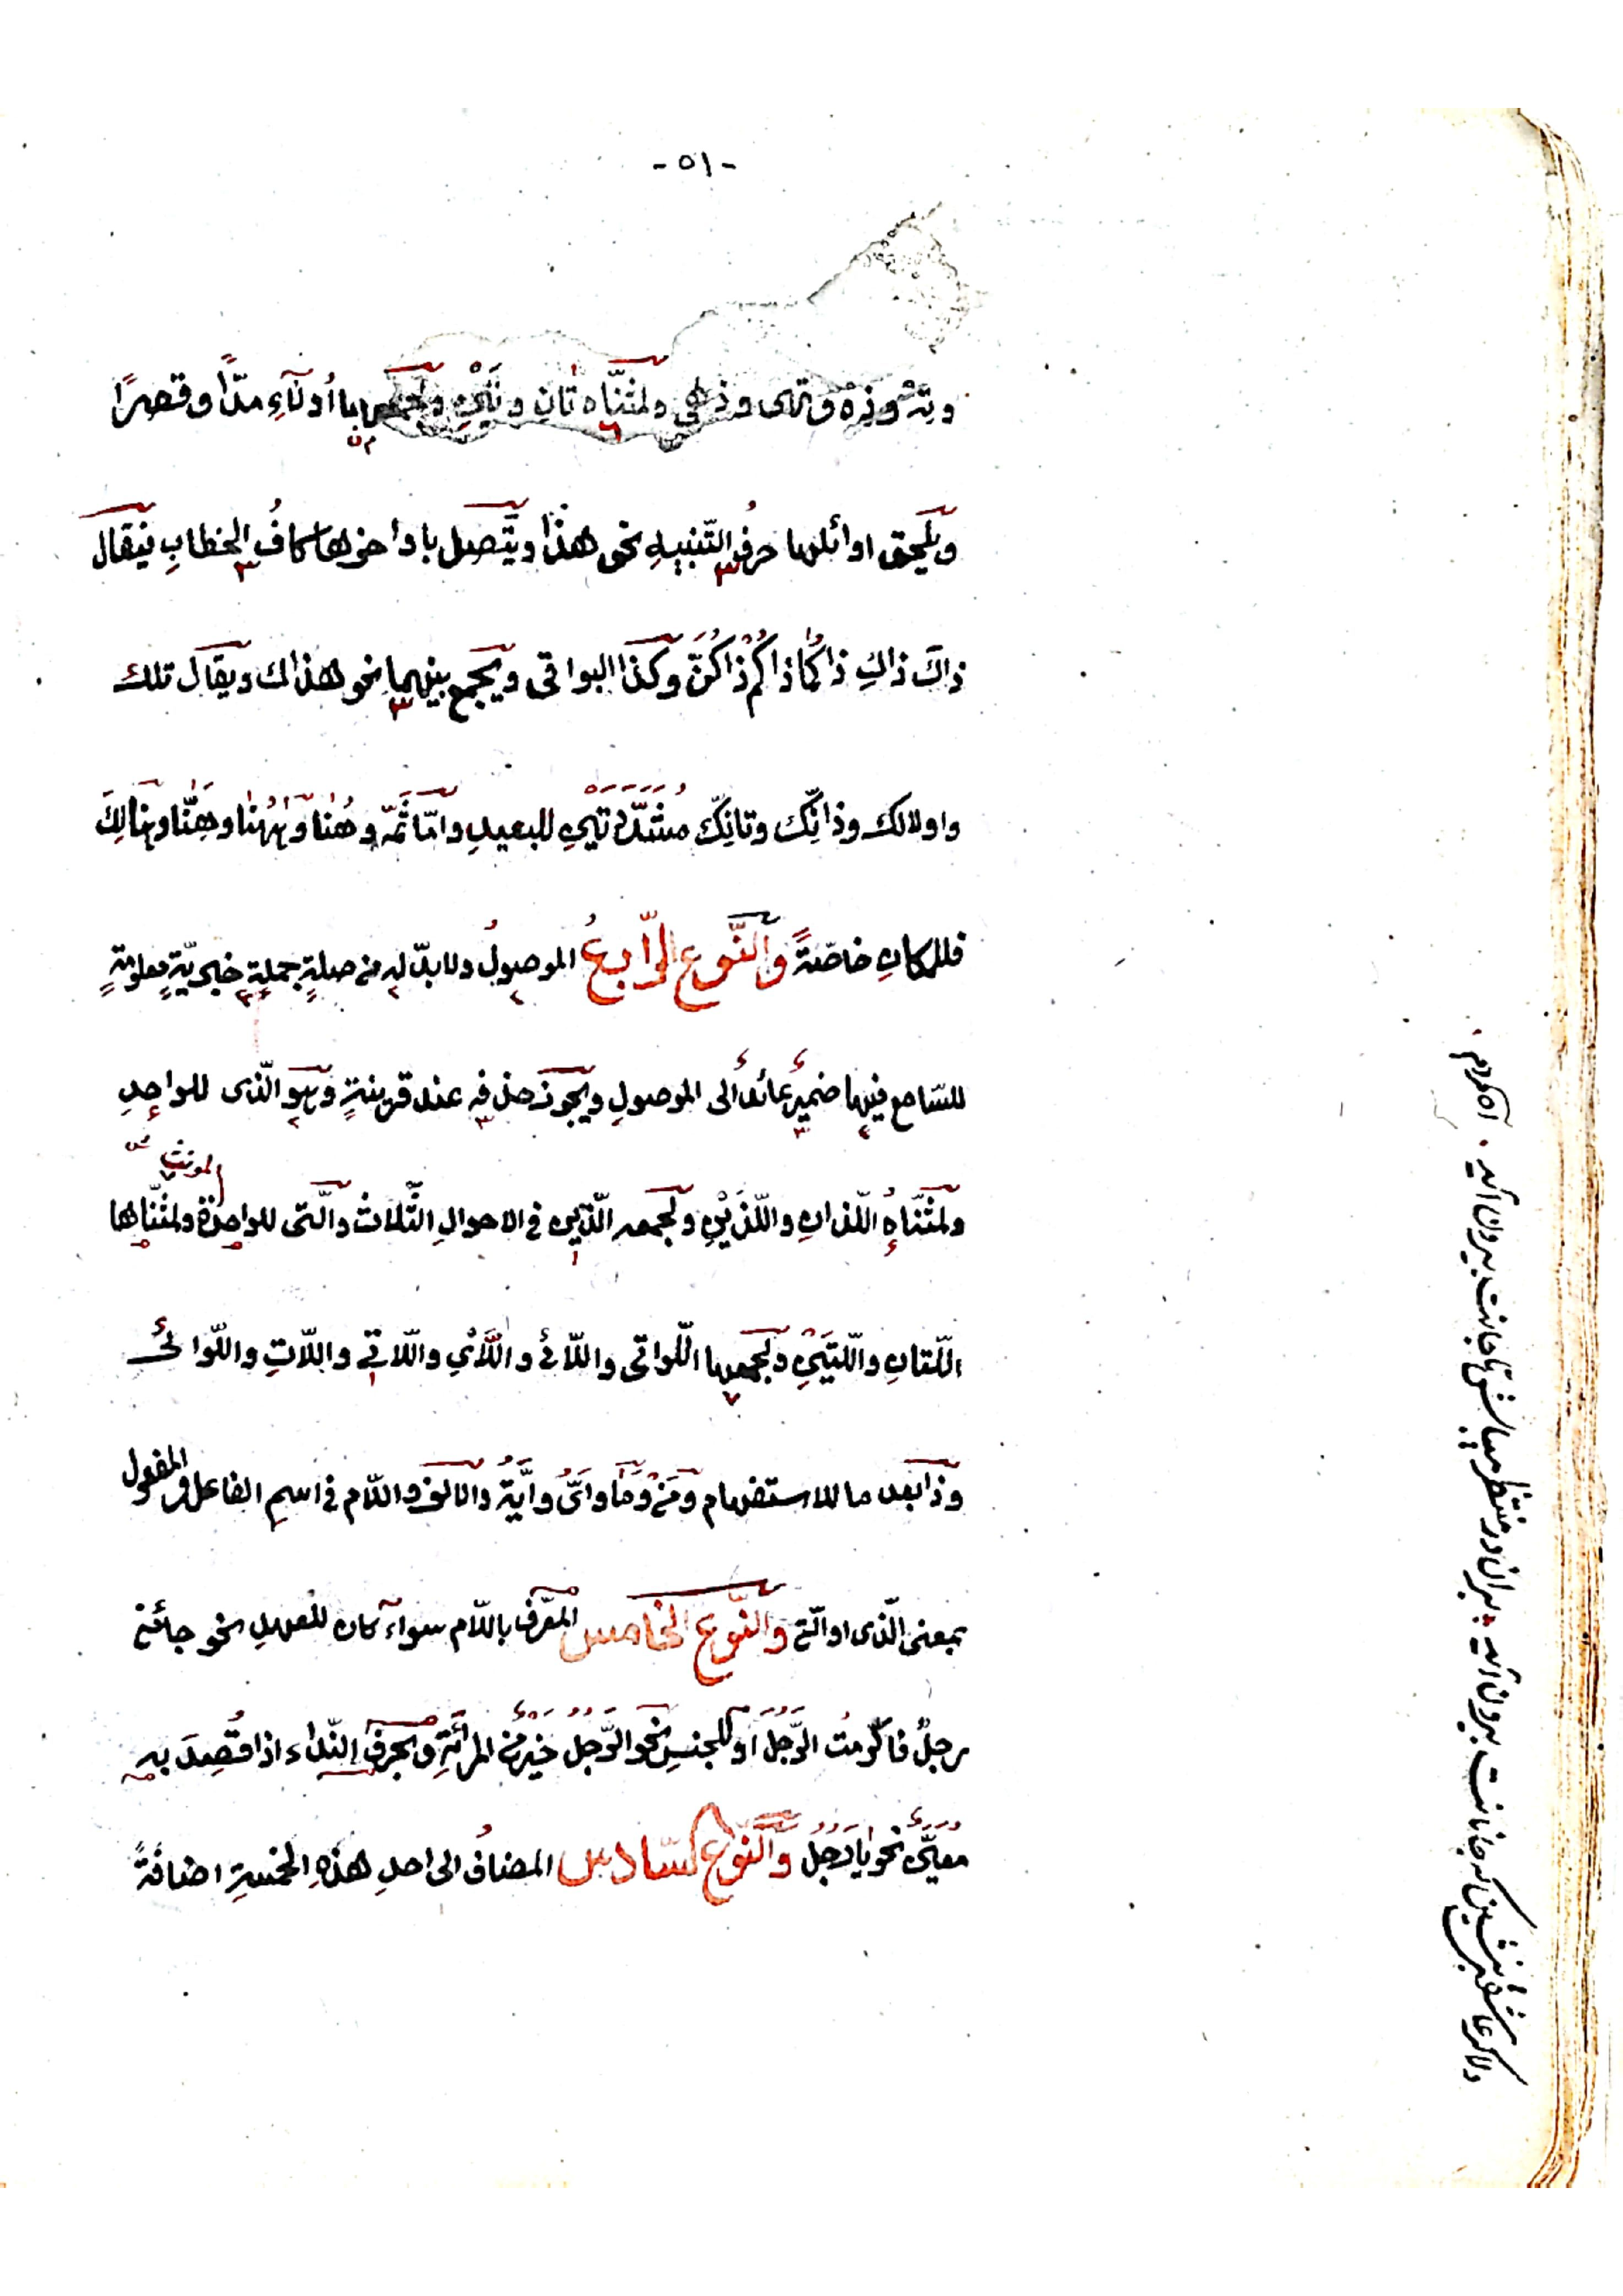 -٥١-
وتِهْ وذِهْ وتهى وذهى ولمثنّاه تانِ وتَيْنِ ولجمعهما أولآءِ مدّاً وقصراً
ويلحق اوائلها حرفُ التّنبيهِ نحو هٰذا ويتّصل باواخرها كافُ الخطابِ فيقال
ذاكَ ذاكِ ذاكُما ذاكُم ذاكُنّ وكذا البواقى ويجمع بينهما نحو هذاك ويقال تلك
واولالك وذانّك وتانِّك مُشَدَّدَتَيْنِ للبعيدِ وامّا ثَمّه وهُنا وهٰهُنا وهَنّا وهنالِكَ
فللمكانِ خاصّةً والنَّوعُ الرّابعُ الموصولُ ولابدّ له من صلةٍ جملةٍ خبريّةٍ معلومةٍ
للسّامع فيها ضميرٌ عائدٌ الى الموصولِ ويجوز حذفه عند قرينةٍ وهو الّذى للواحِدِ
ولمثنّاهُ اللّذانِ واللّذَيْنِ ولجمعه الّذين فى الاحوالِ الثّلاث والّتى للواحِدَةِ المونث ولمثنّاها
اللّتانِ واللّتَيْنِ ولجمعها اللّواتى واللّائى واللَّاىْ واللّاتى واللّاتِ واللّوائى
وذا بعد ما للاستفهام ومَنْ وَمَا واَىُّ واَيَّةُ والالف واللّام فى اسمِ الفاعل والمفعول
بمعنى الّذى او الّتى والنَّوع الخامس المعرّف باللّام سواء كان للعهدِ نحو جائنى
رجلٌ فاكرمتُ الرَّجُلَ اَو للجنسِ نحو الرَّجُلُ خَيْرٌ من المرأةِ وبحرفِ النّداء اذا قُصِدَ بهِ
معيَّنٌ نحو يا رَجُلُ والنّوع السّادس المضافُ الى احدِ هٰذهِ الخمسةِ اضافةً